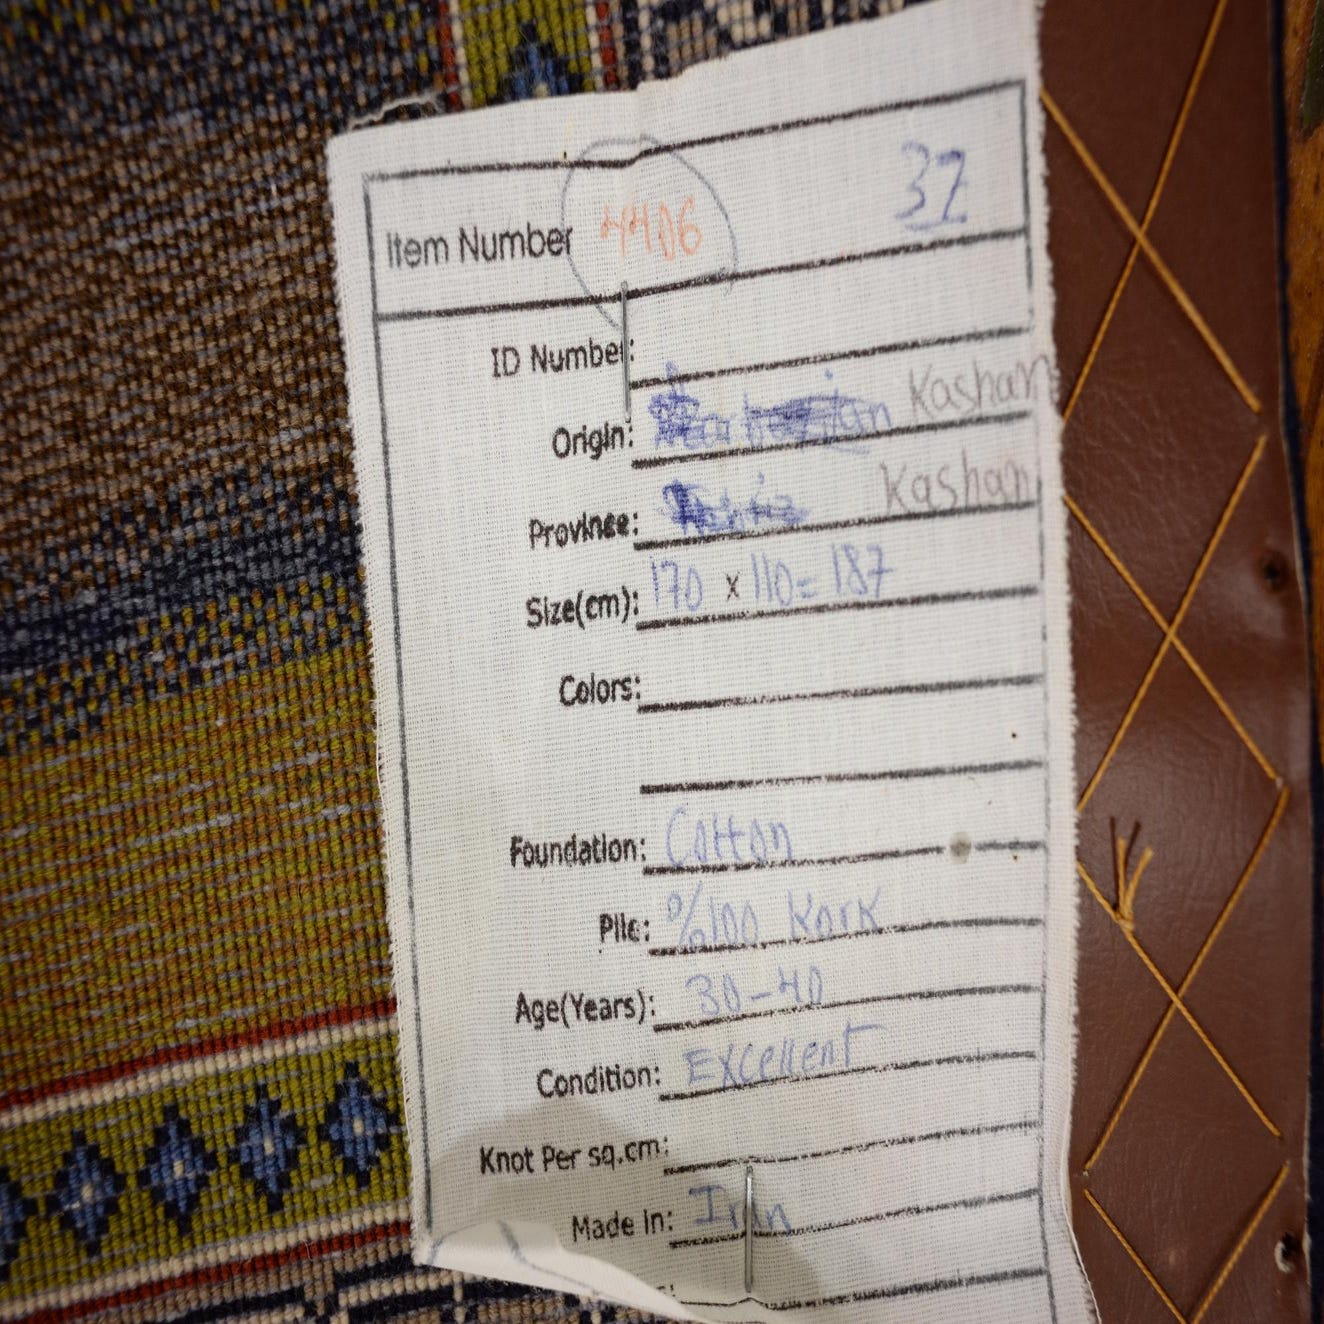 Item Number 4406 37
ID Number:
Origin: Kashan
Province: Kashan
Size(cm): 170 x 110 = 187
Colors:
Foundation: Cotton
Pile: %100 Kork
Age(Years): 30-40
Condition: Excellent
Knot Per sq.cm:
Made in: Iran